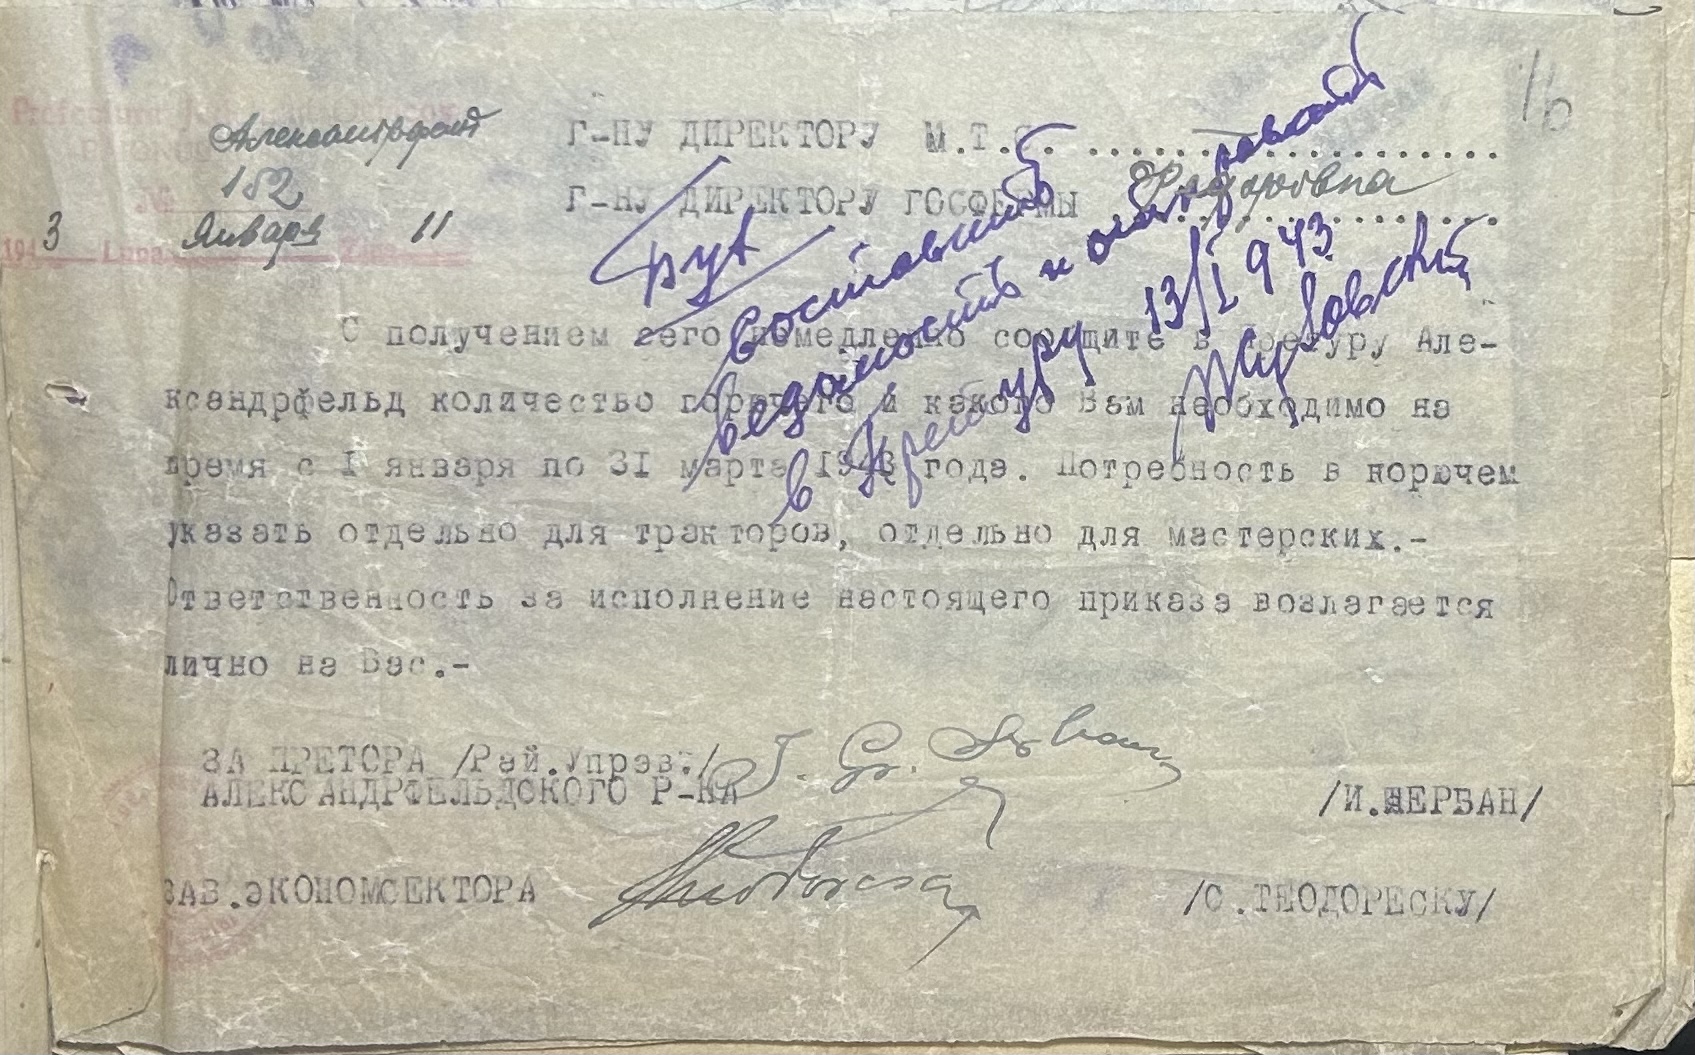 16
Александрфельд
№ 152
1943 Luna Января Ziua 11
Г-НУ ДИРЕКТОРУ М.Т.С. ....................
Г-НУ ДИРЕКТОРУ ГОСФЕРМЫ ....................
Бух
Составить
ведомость и отправить
в Претуру 13/I 943
С получением сего немедленно сообщите в претуру Але-
ксандрфельд количество горючего и какого Вам необходимо на
время с I января по 31 марта 1943 года. Потребность в норючем
указать отдельно для тракторов, отдельно для мастерских.-
Ответственность за исполнение настоящего приказа возлагается
лично на Вас.-
ЗА ПРЕТОРА /Рай.Управ./
АЛЕКСАНДРФЕЛЬДСКОГО Р-НА /И.ШЕРБАН/
ЗАВ.ЭКОНОМСЕКТОРА /С.ТЕОДОРЕСКУ/